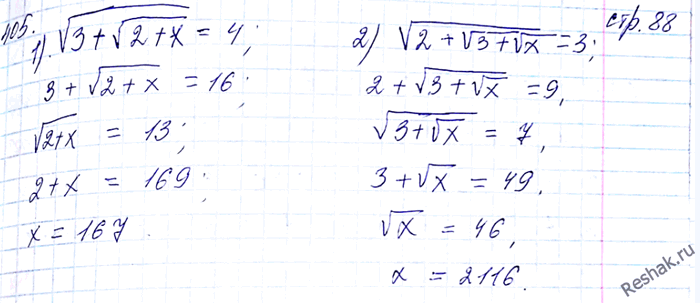 405.
1). √(3+√(2+x)) = 4;
3+√(2+x) = 16;
√(2+x) = 13;
2+x = 169;
x = 167.
2) √(2+√(3+√x)) = 3;
2+√(3+√x) = 9,
√(3+√x) = 7,
3+√x = 49.
√x = 46,
x = 2116.
стр. 88
Reshak.ru